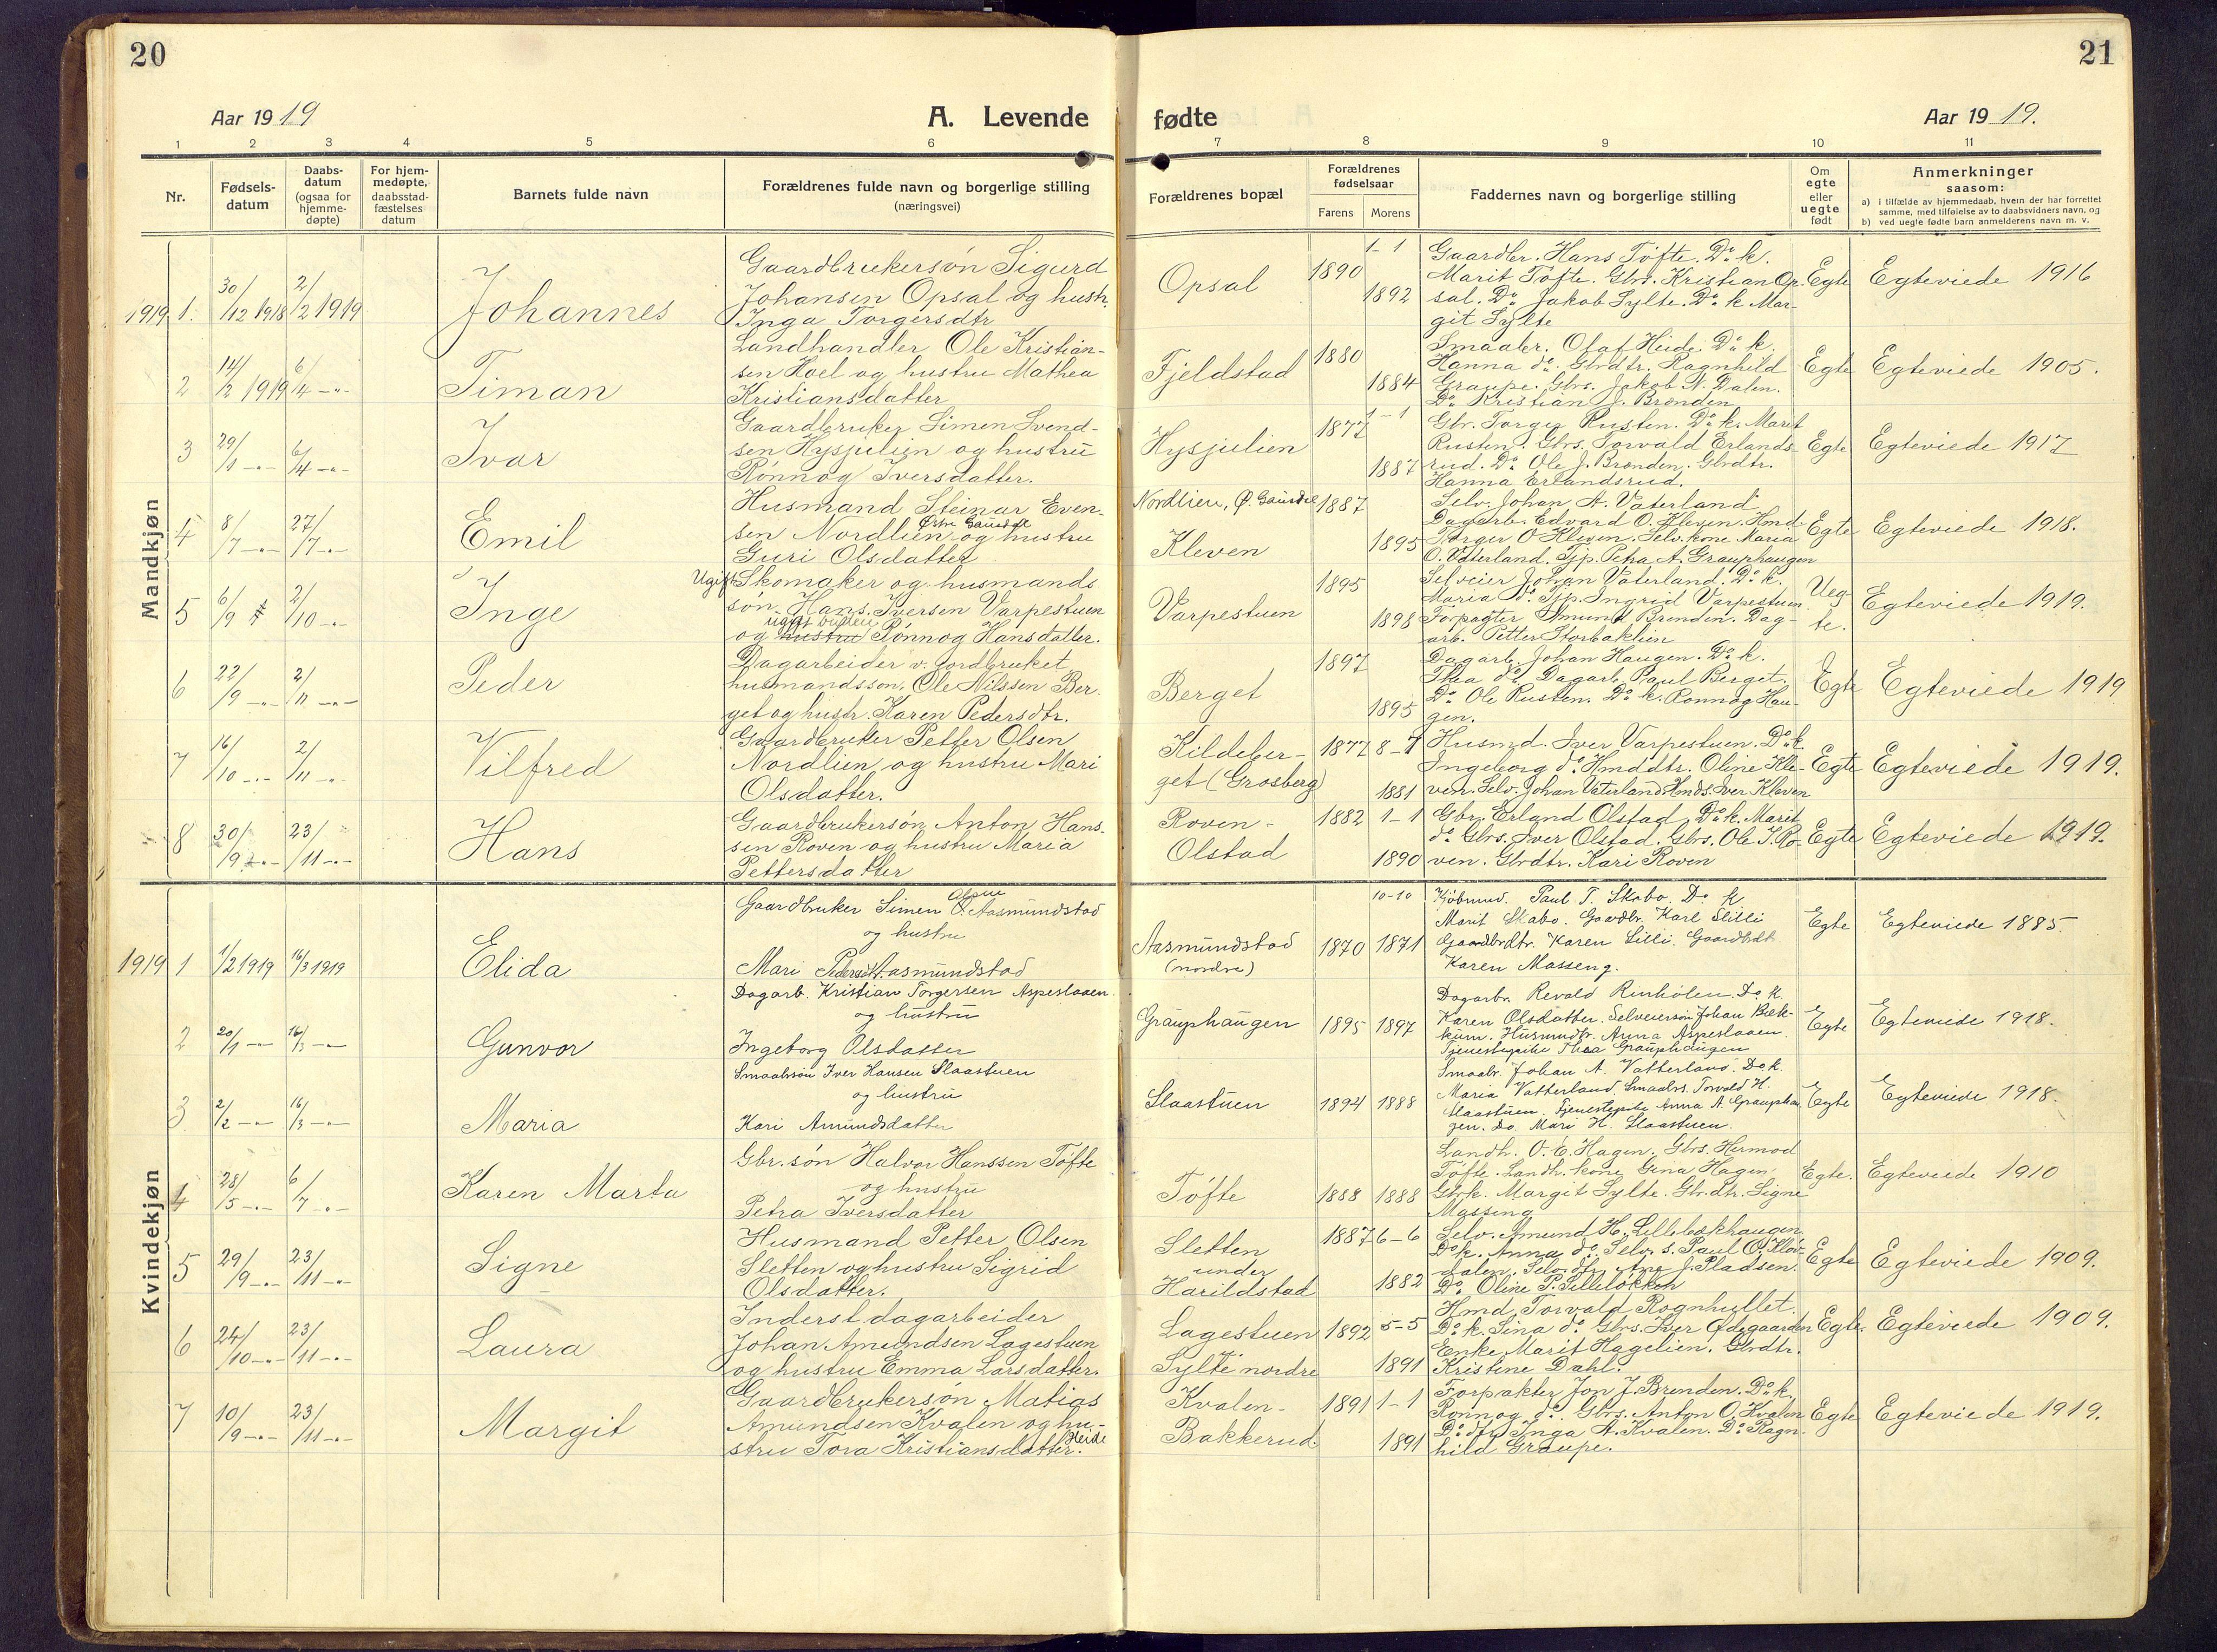 20
Aar 1919
A. Levende
1 2 3 4 5 6
Nr.
Fødsels-
datum
Daabs-
datum
(ogsaa for
hjemme-
døpte)
For hjem-
medøpte,
daabsstad-
fæstelses
datum
Barnets fulde navn
Forældrenes fulde navn og borgerlige stilling
(næringsvei)
Mandkjøn
1919 1. 30/12 1918 2/2 1919 Johannes
Gaardbrukersøn Sigurd
Johansen Opsal og hustr.
Inga Torgersdtr
2 14/2 1919 6/4 -"- Timan
Landhandler Ole Kristian-
sen Hoel og hustru Mathea
Kristiansdatter
3 29/1 -"- 6/4 -"- Ivar
Gaardbruker Simen Svend-
sen Hysjulien og hustru
Rønnog Iversdatter.
4 8/7 -"- 27/7 -"- Emil
Husmand Steinar Even-
sen Nordlien Østre Gausdal og hustru
Guri Olsdatter
5 6/9 2/10 -"- Inge
Ugift Skomaker og husmands
søn Hans Iversen Varpestuen
og hustru Rønnog Hansdatter.
6 22/9 -"- 2/11 -"- Peder
Dagarbeider v. jordbruket
husmandssøn, Ole Nilssen Ber-
get og hustr. Karen Pedersdtr.
7 16/10 -"- 2/11 -"- Vilfred
Gaardbruker Petter Olsen
Nordlien og hustru Mari
Olsdatter.
8 30/9 -"- 23/11 -"- Hans
Gaardbrukersøn Anton Hans-
sen Roven og hustru Maria
Pettersdatter
Kvindekjøn
1919 1 1/2 1919 16/3 1919 Elida
Gaardbruker Simen O. Aasmundstad
og hustru
Mari Pedersdtr. Aasmundstad
2 20/1 -"- 16/3 -"- Gunvor
Dagarb. Kristian Torgersen Aspeslaaen
og hustru
Ingeborg Olsdatter
3 2/2 -"- 16/3 -"- Maria
Smaabrsøn Iver Hansen Slaastuen
og hustru
Kari Amundsdatter
4 28/5 -"- 6/7 -"- Karen Marta
Gbr. søn Halvor Hanssen Tøfte
og hustru
Petra Iversdatter
5 29/9 -"- 23/11 -"- Signe
Husmand Petter Olsen
Sletten og hustru Sigrid
Olsdatter.
6 24/10 -"- 23/11 -"- Laura
Inderst dagarbeider
Johan Amundsen Lagestuen
og hustru Emma Larsdatter.
7 10/9 -"- 23/11 -"- Margit
Gaardbrukersøn Matias
Amundsen Kvalen og hu-
stru Tora Kristiansdatter. Heide
21
fødte
Aar 1919.
7 8 9 10 11
Forældrenes bopæl
Forældrenes
fødselsaar
Farens Morens
Faddernes navn og borgerlige stilling
Om
egte
eller
uegte
født
Anmerkninger
saasom:
a) i tilfælde av hjemmedaab, hvem der har forrettet
samme, med tilføielse av to daabsvidners navn, og
b) ved uegte fødte barn anmelderens navn m. v.
Opsal 1890 1-1 1892
Gaardbr. Hans Tøfte. Do k.
Marit Tøfte. Gbr. Kristian Op-
sal. Do Jakob Sylte. Do k. Mar-
git Sylte
Egte Egteviede 1916
Fjeldstad 1880 1884
Smaabr. Olaf Heide. Do k.
Hanna do. Gbrdtr. Ragnhild
Graupe. Gbrs. Jakob A. Dalen.
Do Kristian J. Brenden
Egte Egteviede 1905.
Hysjulien 1877 1-1 1887
Gbr. Torger Rusten. Do k. Marit
Rusten. Gbrs. Torvald Erlands-
rud. Do Ole J. Brenden. Gbrdtr.
Hanna Erlandsrud.
Egte Egteviede 1917
Nordlien, Ø. Gausdal 1887
Kleven 1895
Selv. Johan A. Vaterland
Dagarb. Edvard O. Kleven. Hmd.
Torger O Kleven. Selv. kone Maria
O. Vatterland. Tjp. Petra A. Grauphaugen
Egte Egteviede 1918.
Varpestuen 1895 1898
Selveier Johan Vaterland. Do k.
Maria do. Tjp. Ingrid Varpestuen.
Forpagter Amund Brenden. Dag-
arb. Petter Storbakken
Ueg-
te.
Egteviede 1919.
Berget 1897 1895
Dagarb. Johan Haugen. Do k.
Thea do. Dagarb. Paul Berget.
Do Ole Rusten. Do k. Rønnog Hau-
gen.
Egte Egteviede 1919
Kildeber-
get (Grosberg) 1877 8-7 1881
Husmd. Iver Varpestuen. Do k.
Ingeborg do. Hmddtr. Oline Kle-
ven. Selv. Johan Vaterland Hmds. Iver Kleven
Egte Egteviede 1919.
Roven-
Olstad 1882 1-1 1890
Gbr. Erland Olstad. Do k. Marit
do. Gbrs. Iver Olstad. Gbrs. Ole I. Ro-
ven. Gbrdtr. Kari Roven
Egte Egteviede 1919.
Aasmundstad
(nordre) 1870 10-10 1871
Kjøbmd. Paul T. Skabo. Do k
Marit Skabo. Gaardbr. Karl Slilli
Gaardbrdtr. Karen Lilli. Gaardbdt.
Karen Masseng.
Egte Egteviede 1885.
Grauphaugen 1895 1897
Dagarbr. Revald Rinhølen. Do k.
Karen Olsdatter. Selveiersøn Johan Bæk-
kum. Husmndtr. Anna Aspeslaaen.
Tjenestepike Thea Grauphaugen
Egte Egteviede 1918.
Slaastuen 1894 1888
Smaabr. Johan A. Vatterland. Do k.
Maria Vatterland Smaabrs. Torvald H.
Slaastuen. Tjenestepike Anna A. Grauphau
gen. Do. Mari H. Slaastuen.
Egte Egteviede 1918.
Tøfte 1888 1888
Landh. O. E. Hagen. Gbrs. Hermod
Tøfte. Landh. kone Gina Hagen
Gbrk. Margit Sylte. Gbr. dtr. Signe
Massing
Egte. Egteviede 1910
Sletten
under
Harildstad 1887 6-6 1882
Selv. Amund H. Lillebækhaugen
Do k. Anna do. Selv. s. Paul O. Kløv-
dalen. Selv. dtr. Ane J. Pladsen.
Do Oline P. Lilleløkken
Egte Egteviede 1909.
Lagestuen
Sylte nordre 1892 5-5 1891
Hmd. Torvald Rognhullet.
Do k. Sina do. Gbrs. Iver Ødegaarden
Enke Marit Hagelien. Gbrdtr.
Kristine Dahl.
Egte. Egteviede 1909.
Kvalen-
Bakkerud. 1891 1-1 1891
Forpakter Jon J. Brenden. Do k.
Rønnog do. Gbrs. Anton O. Kvalen
Do dtr. Inga A. Kvalen. Do Ragn-
hild Graupe.
Egte Egteviede 1919.